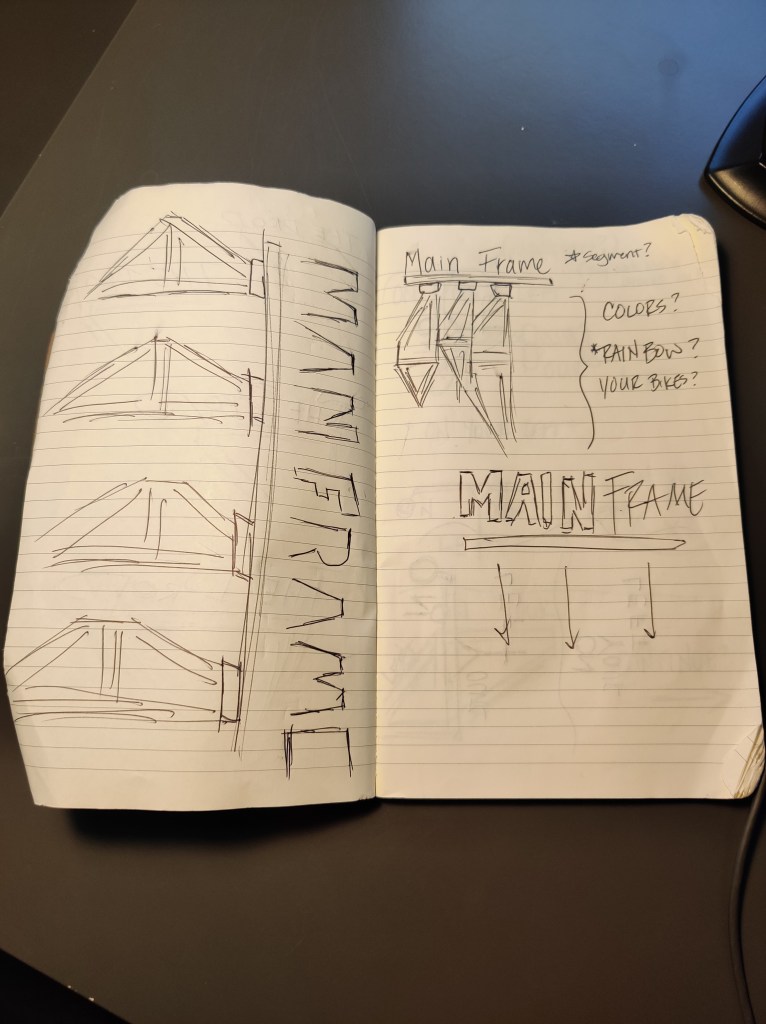 MAIN FRAME
Main Frame *Segment?
COLORS?
*RAINBOW?
YOUR BIKES?
MAIN FRAME